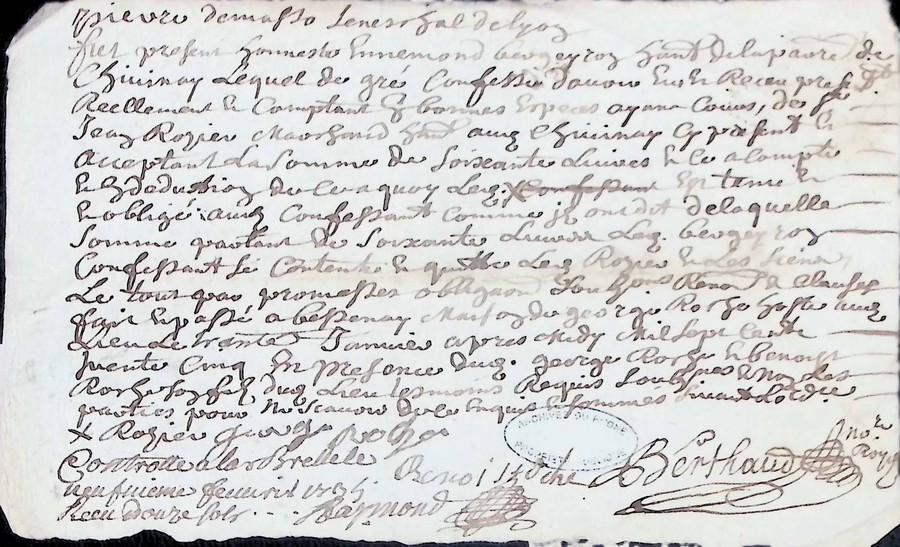 pierre demasso seneschal de lyon
fut present honneste Ennemond bergeyron hant de la parr de
Chivinay Lequel de gré Confesse davoir eu et Receu
Reellement et Comptant en bonnes Especes ayant Cours, de sr
Jean Rozier Marchand hant aud Chivinay cy present et
acceptant La somme de Soixante Livres et ce a Compte
et deduction de ce aquoy Led x Confessant Est tenu et
et obligé aud Confessant comme ils ont dit de laquelle
somme partant de Soixante Livres Led bergeyron
Confessant se Contente et quitte Led Rozier et Les siens
Le tout par promesses obligaons Soubzons Renons & clauses
fait et passé a bessenay Maison de george Roche hoste aud
Lieu Le trante Janvier apres Midy Mil sept cents
trente Cinq En presence dud george Roche et benoist
Roche son fils dud Lieu tesmoins Requis Soubsignes & non Les
parties pour ne scavoir de ce Enquis et sommes suivant Lordce
x Rozier george roche
ARCHIVES DU RHONE
Benoit Roche
Berthaud nore Royal
Controllé a larbrelle
neufvieme fevrier 1735
Receu douze sols
Raymond